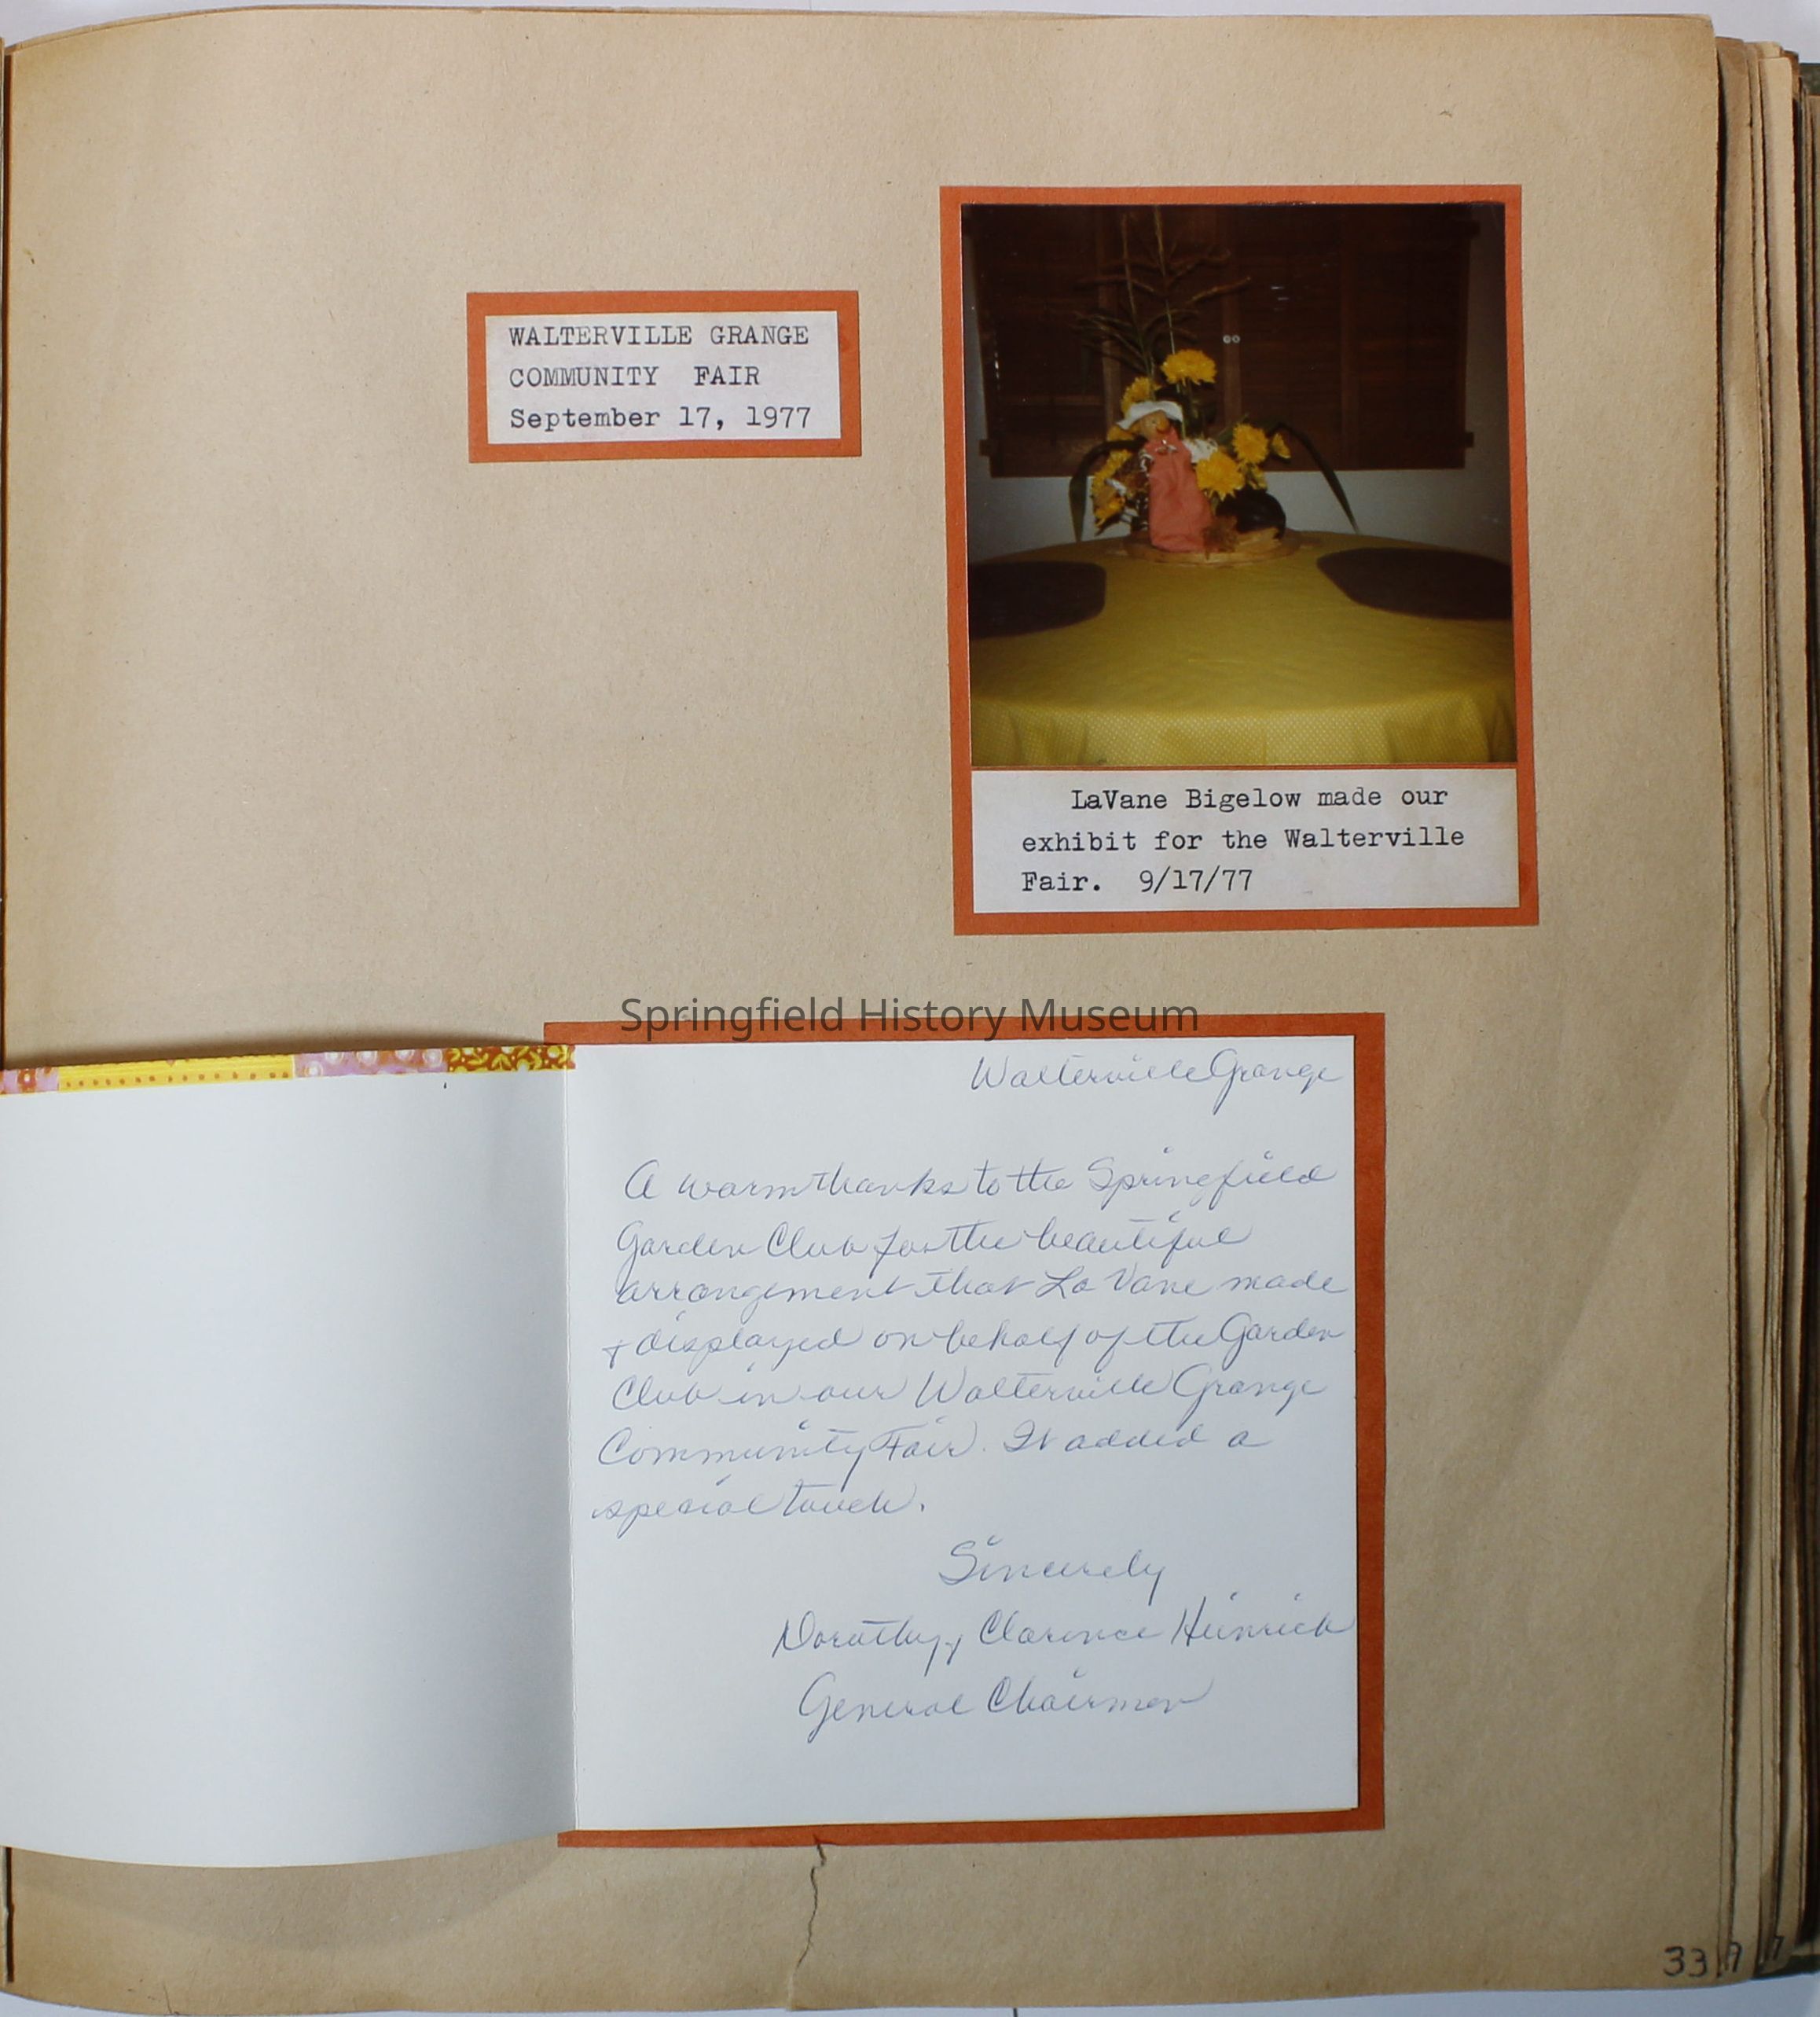 WALTERVILLE GRANGE
COMMUNITY FAIR
September 17, 1977
LaVane Bigelow made our
exhibit for the Walterville
Fair. 9/17/77
Springfield History Museum
Walterville Grange
A warm thanks to the Springfield
Garden Club for the beautiful
arrangement that La Vane made
+ displayed on behalf of the Garden
Club in our Walterville Grange
Community Fair. It added a
special touch.
Sincerely
Dorothy + Clarence Heinrich
General Chairman
33